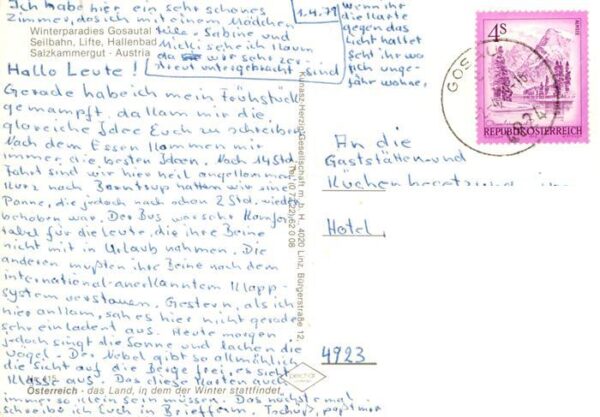 Ich habe hier ein sehr schönes
Zimmer, das ich mit einem Mädchen
teile. Sabine und
Micki
da wir sehr zer-
streut untergebracht sind
1.4.79
Wenn ihr
die Karte
gegen das
Licht haltet
seht ihr wo
ich unge-
fähr wohne.
Winterparadies Gosautal
Seilbahn, Lifte, Hallenbad
Salzkammergut - Austria
Hallo Leute!
Gerade habe ich mein Frühstück
gemampft, da kam mir die
glorreiche Idee Euch zu schreiben
Nach dem Essen kommen mir
immer die besten Ideen. Nach 14 Std.
Fahrt sind wir hier heil angekommen.
Kurz nach hatten wir eine
Panne, die jedoch nach schon 2 Std. wieder
behoben war. Der Bus war sehr komfor-
tabel für die Leute, die ihre Beine
nicht mit in Urlaub nahmen. Die
anderen mußten ihre Beine nach dem
international-anerkanntem Klapp-
system verstauen. Gestern, als ich
hier ankam, sah es hier nicht gerade
sehr einladent aus. Heute morgen
jedoch singt die Sonne und lachen die
Vögel. Der Nebel gibt so allmählich
die Sicht auf die Berge frei, es sieht
Klasse aus. Das diese Karten auch
immer so klein sein müssen. Das nächste mal
schreibe ich Euch in Briefform. Tschüß,
Nr. 415
Österreich - das Land, in dem der Winter stattfindet
Kunasz-Herzig-Gesellschaft m. b. H., 4020 Linz, Bürgerstraße 12,
Tel. (0 7 62 0 08
4S
ALMSEE
REPUBLIK ÖSTERREICH
GOS
4824
An die
Gaststätten- und
Küchenbesetzung im
Hotel,
4923